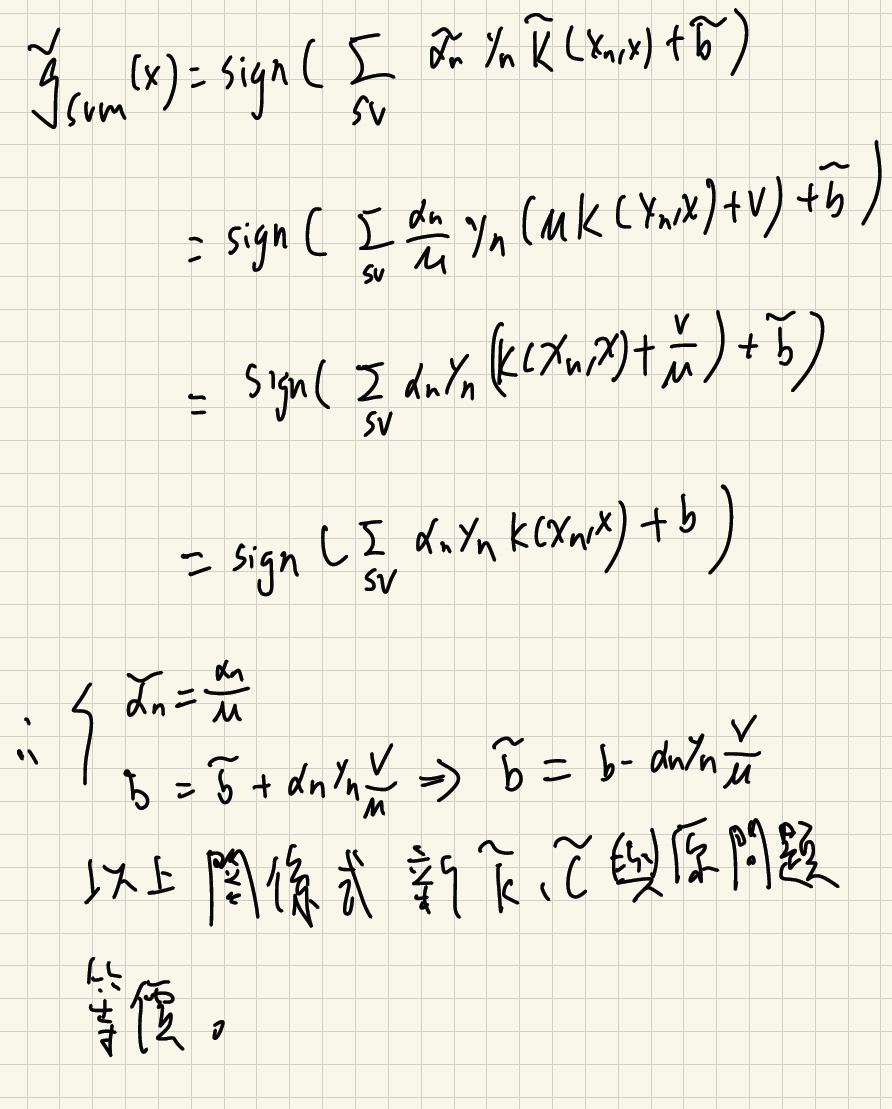 g̃_svm(x) = sign( Σ_SV α̃_n y_n K̃(x_n,x) + b̃ )
= sign( Σ_SV α_n/μ y_n (μK(x_n,x)+v) + b̃ )
= sign( Σ_SV α_n y_n (K(x_n,x)+ v/μ) + b̃ )
= sign( Σ_SV α_n y_n K(x_n,x) + b )
∴ { α̃_n = α_n/μ
b = b̃ + α_n y_n v/μ ⇒ b̃ = b - α_n y_n v/μ
以上關係式 對 K̃、C̃ 與原問題
等價。